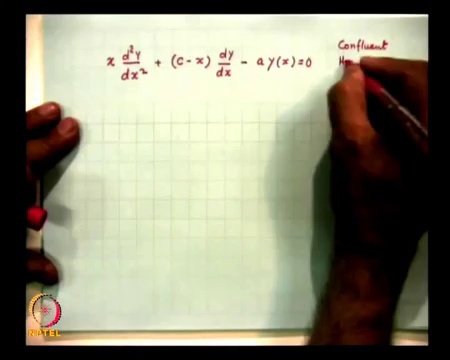 x d²y/dx² + (c - x) dy/dx - a y(x) = 0
Confluent
NPTEL